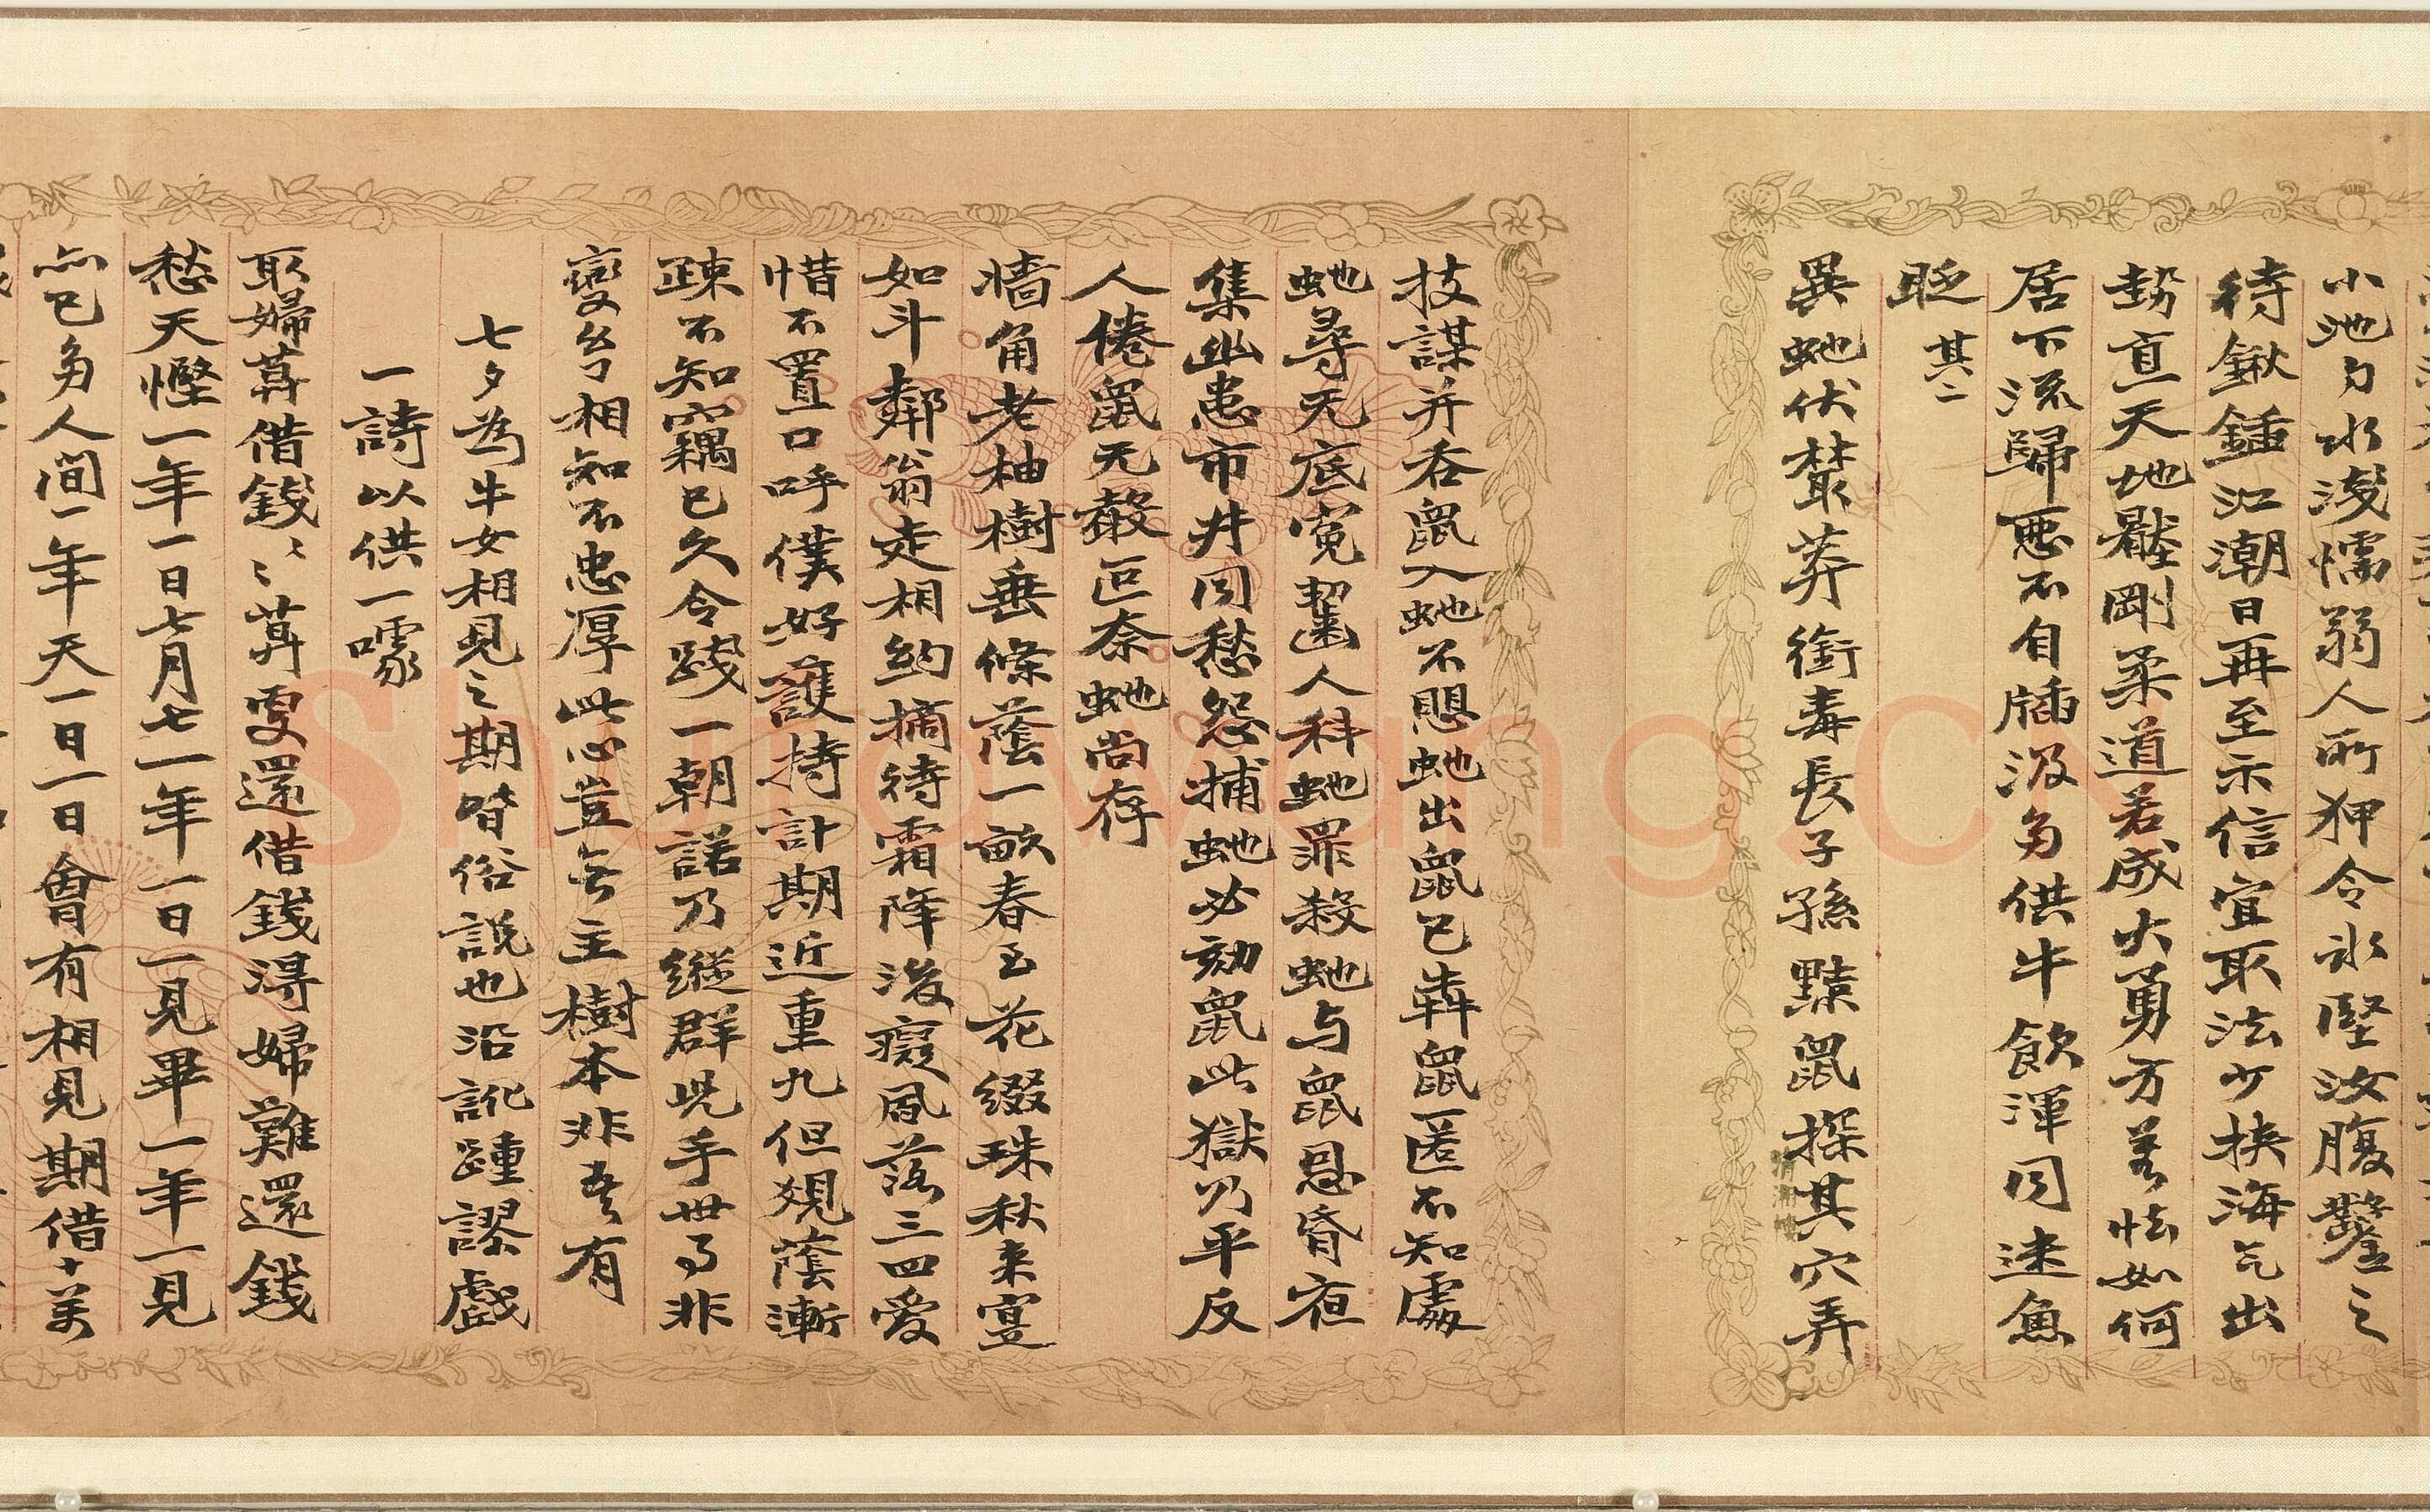 小池勺水淺懦弱人所狎令氷堅汝腹鑿之
待鍬鍤江潮日再至示信宜取法少挾海氣出
勢亘天地壓剛柔道若成大勇方差怯如何
居下流歸惡不自牐汲多供牛飲渾同迷魚
眨 其二
異虵伏榛莽銜毒長子孫黠鼠探其穴弄
技謀并吞鼠入虵不慍虵出鼠已犇鼠匿不知處
虵尋无底寃齧人科虵罪殺虵与鼠恩昏夜
集幽患市井同愁怨捕虵必劾鼠此獄乃平反
人倦鼠无殽叵奈虵尚存
牆角老柚樹垂條蔭一畝春玉花綴珠秋来寔
如斗鄰翁走相約摘待霜降後癡風落三四愛
惜不置口呼僕好護持計期近重九但覘蔭漸
疎不知竊已久令踐一朝諾乃縱群児手世事非
變兮相知不忠厚此心豈無主樹本非吾有
七夕為牛女相見之期啙俗説也沿訛踵謬戲
一詩以供一噱
取婦莫借錢〻〻莫更還借錢得婦難還錢
愁天慳一年一日七月七一年一日一見畢一年一見
亦已多人間一年天一日一日會有相見期借十萬
Shuowang.CN